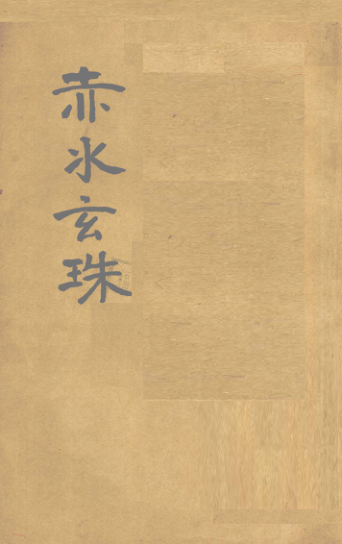 赤水玄珠